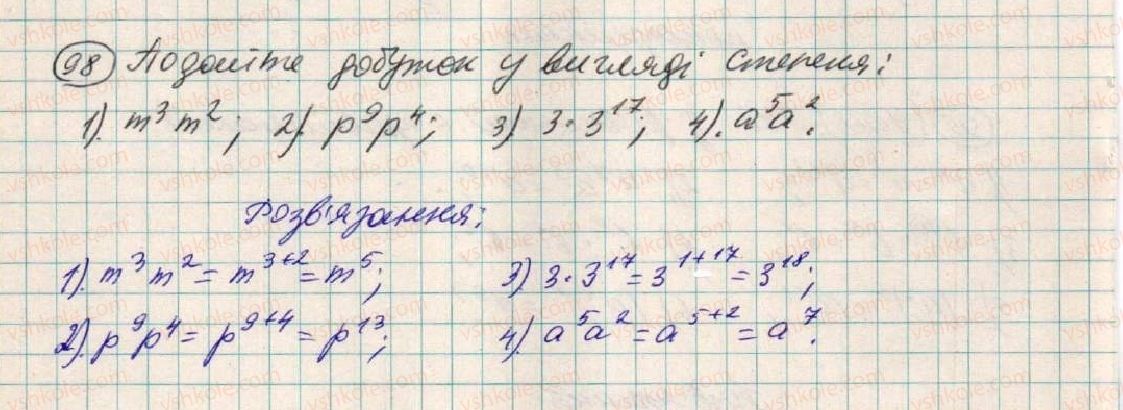 98 Подайте добуток у вигляді степеня:
1). m³ m²; 2). p⁹p⁴; 3) 3·3¹⁷; 4). a⁵a².
Розв'язання:
1). m³ m² = m³⁺² = m⁵; 3) 3·3¹⁷ = 3¹⁺¹⁷ = 3¹⁸;
2). p⁹p⁴ = p⁹⁺⁴ = p¹³; 4). a⁵a² = a⁵⁺² = a⁷.